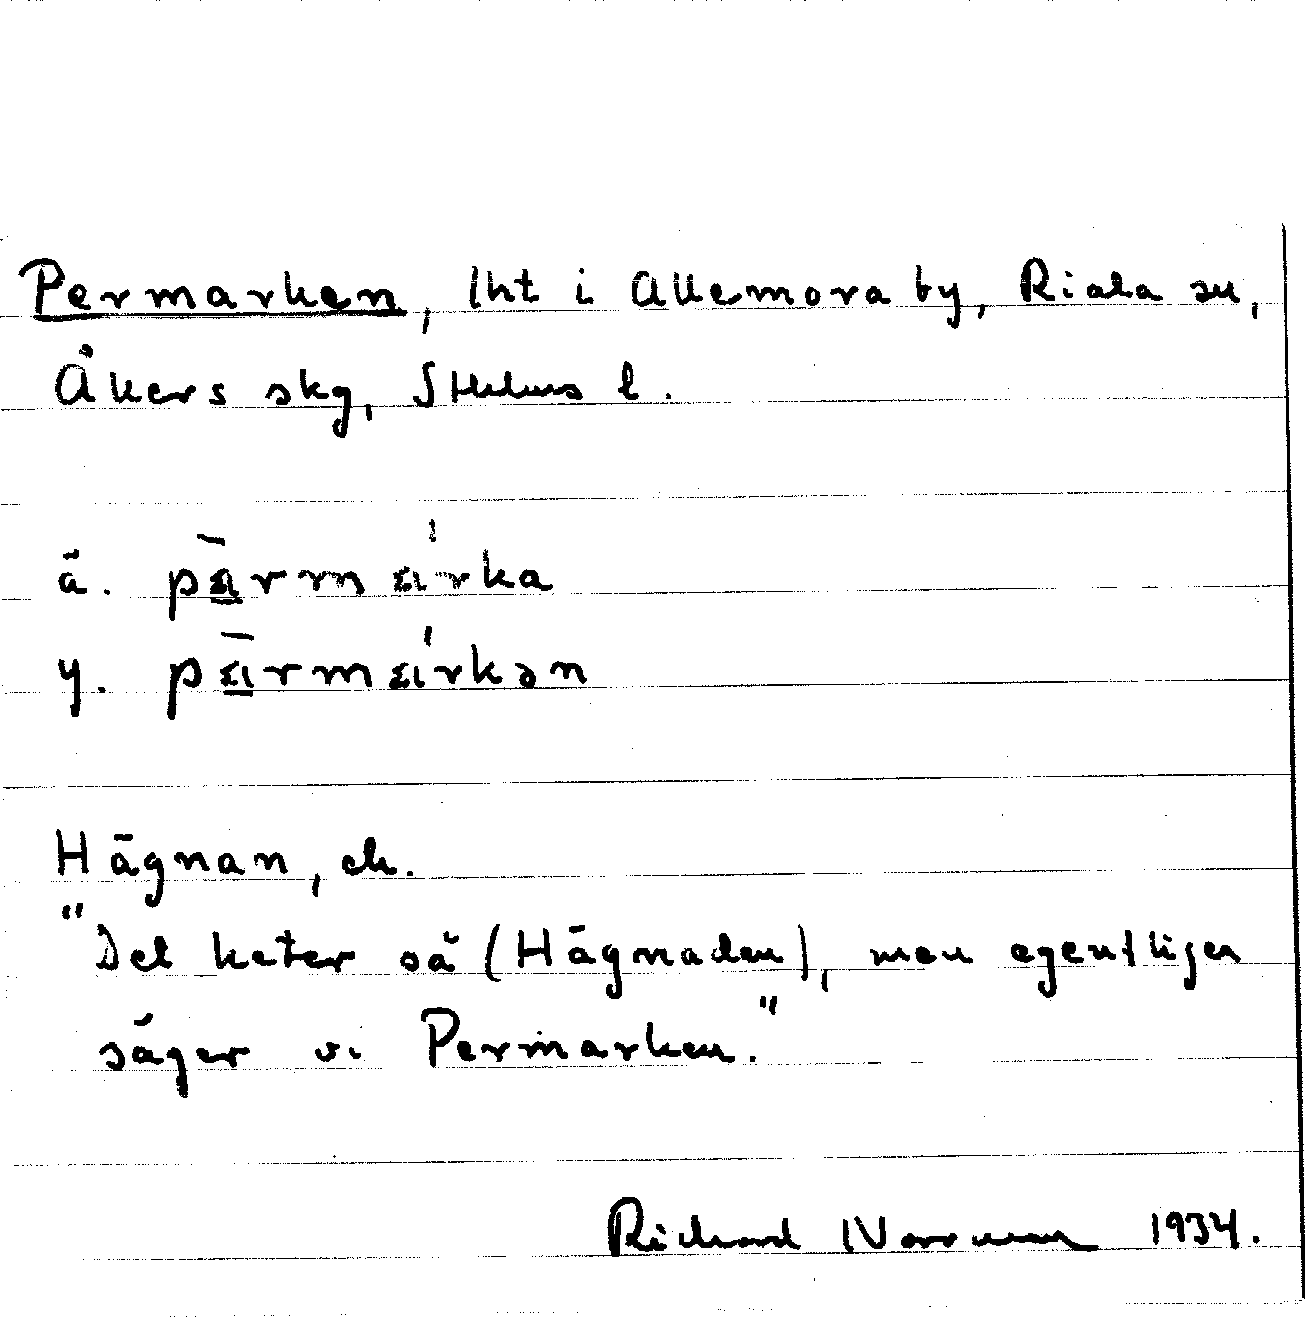 Permarken, lht i Allemora by, Riala sn,
Åkers skg, Sthlms l.
ä. pärmárka
y. pärmárkən
Hägnan, ek.
"Det heter så (Hägnaden), men egentligen
säger vi Permarken."
Richard Norrman 1934.